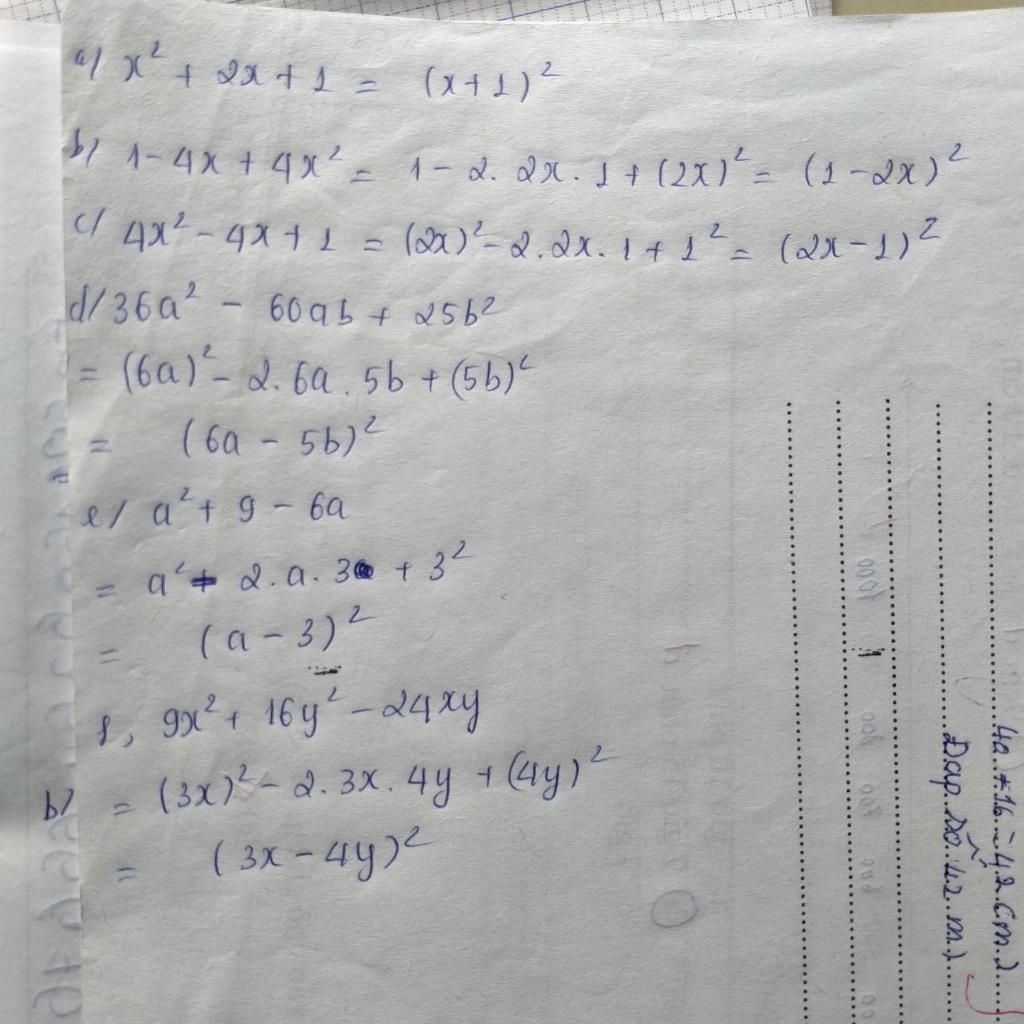 a/ x² + 2x + 1 = (x+1)²
b/ 1 - 4x + 4x² = 1 - 2. 2x. 1 + (2x)² = (1 - 2x)²
c/ 4x² - 4x + 1 = (2x)² - 2.2x. 1 + 1² = (2x - 1)²
d/ 36a² - 60ab + 25b²
= (6a)² - 2.6a. 5b + (5b)²
= (6a - 5b)²
e/ a² + 9 - 6a
= a² - 2.a. 3 + 3²
= (a - 3)²
f, 9x² + 16y² - 24xy
b/ = (3x)² - 2. 3x. 4y + (4y)²
= (3x - 4y)²